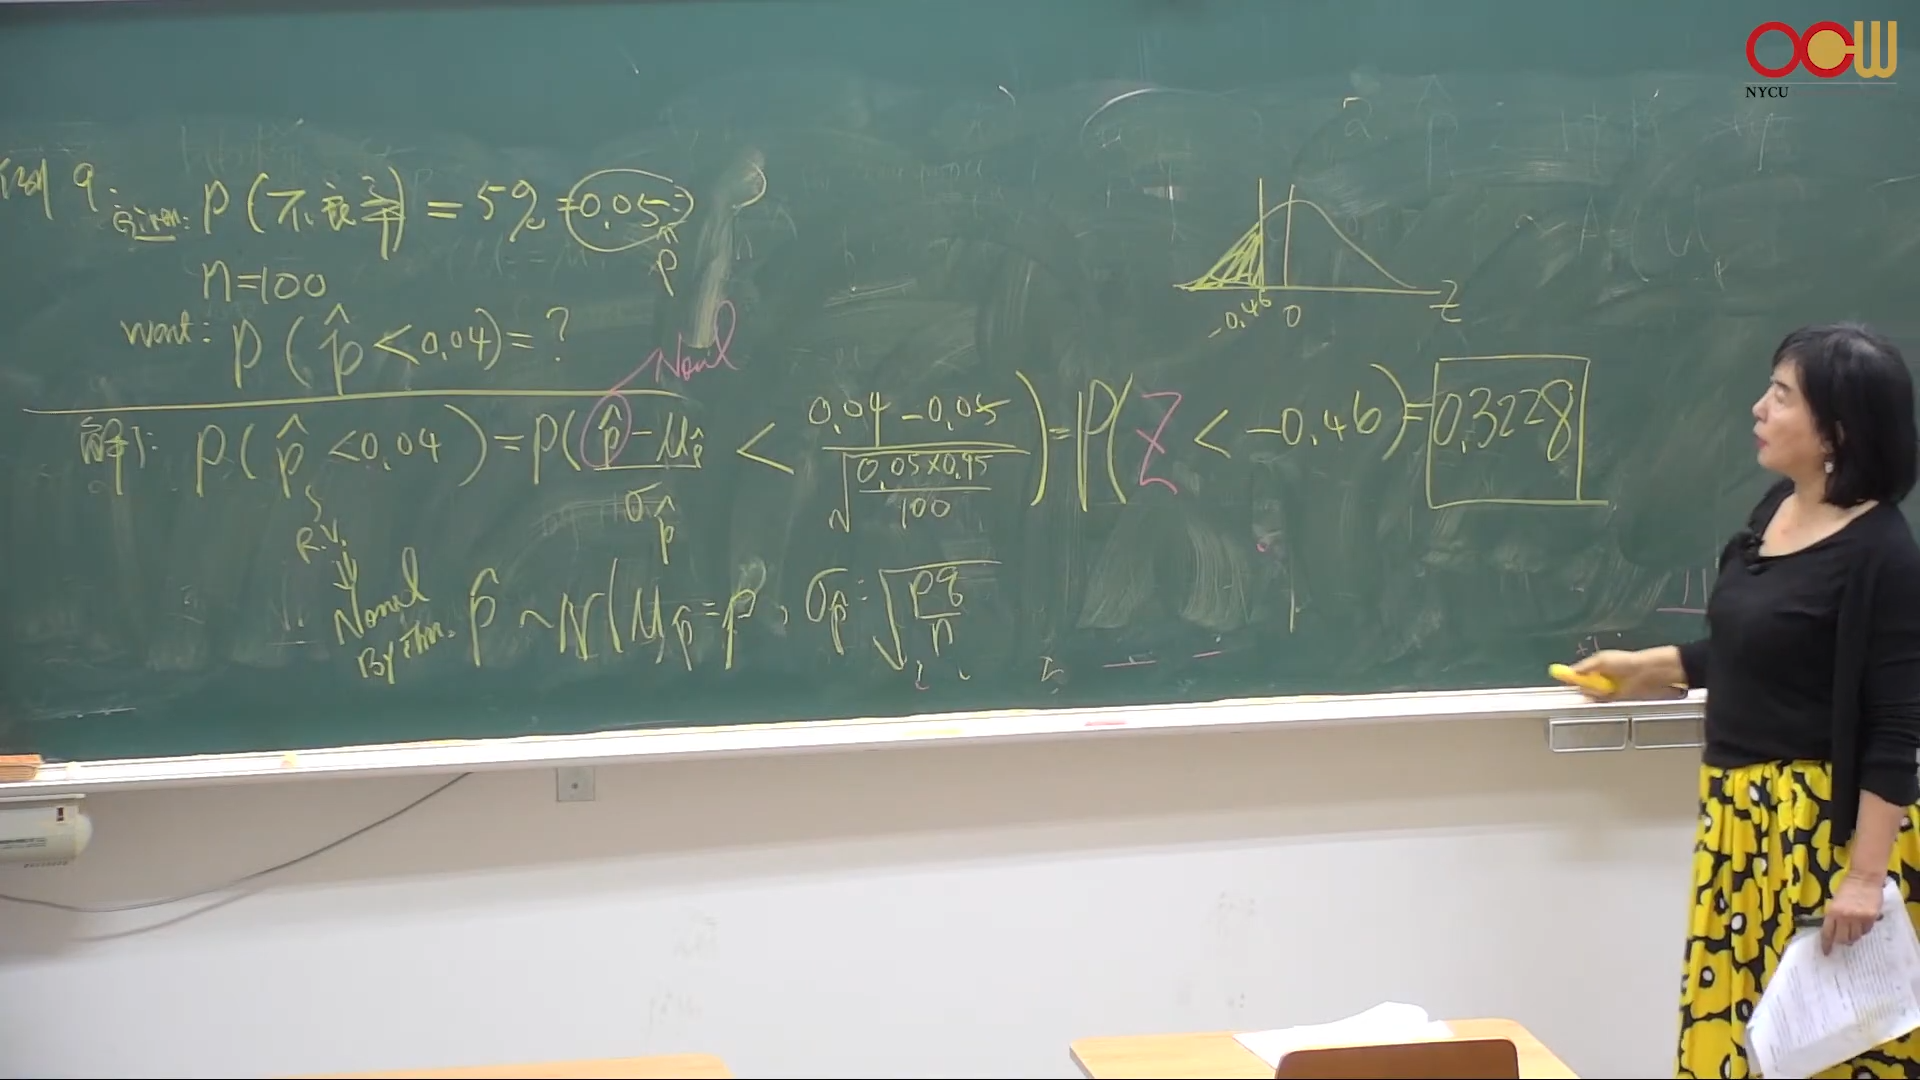 OCW
NYCU
例9:
Given: P(不良率) = 5% = 0.05 = p
n=100
Want: P(p̂ < 0.04) = ?
Normal
解: P(p̂ < 0.04) = P( (p̂ - μp̂) / σp̂ < (0.04 - 0.05) / √(0.05×0.95 / 100) ) = P(Z < -0.46) = 0.3228
R.V.
Normal
By thm. p̂ ~ N(μp̂ = p, σp̂ = √(pq/n)
-0.46 0 Z